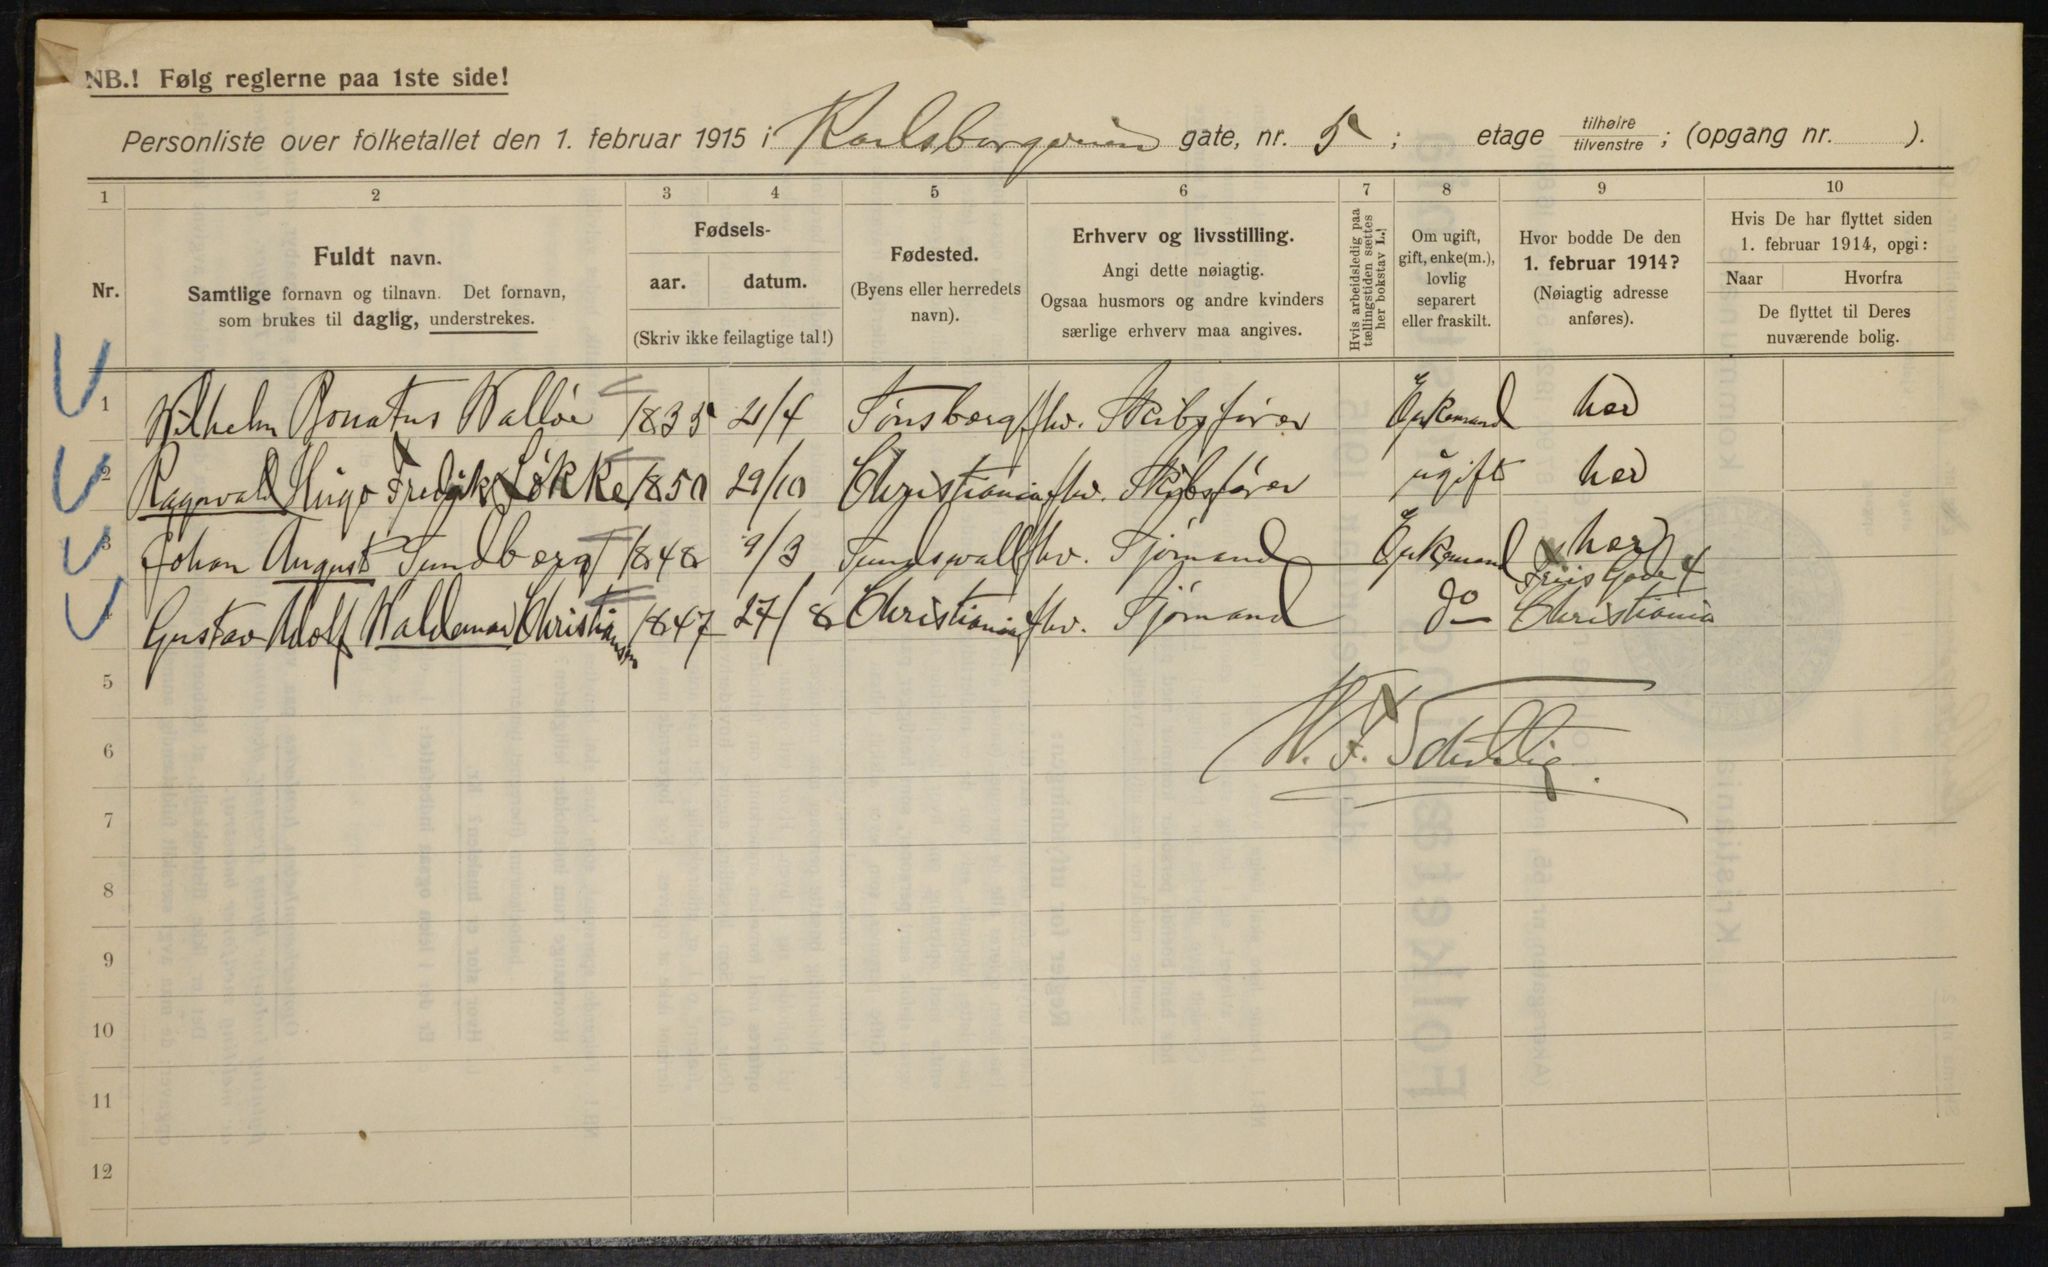 NB.! Følg reglerne paa 1ste side!
Personliste over folketallet den 1. februar 1915 i Karlsborgveien gate, nr. 5 ; etage tilhøire / tilvenstre ; (opgang nr. ).
1 2 3 4 5 6 7 8 9 10
Nr.
Fuldt navn.
Samtlige fornavn og tilnavn. Det fornavn,
som brukes til daglig, understrekes.
Fødsels-
aar. datum.
(Skriv ikke feilagtige tal!)
Fødested.
(Byens eller herredets
navn).
Erhverv og livsstilling.
Angi dette nøiagtig.
Ogsaa husmors og andre kvinders
særlige erhverv maa angives.
Hvis arbeidsledig paa
tællingstiden sættes
her bokstav L.
Om ugift,
gift, enke(m.),
lovlig
separert
eller fraskilt.
Hvor bodde De den
1. februar 1914?
(Nøiagtig adresse
anføres).
Hvis De har flyttet siden
1. februar 1914, opgi:
Naar Hvorfra
De flyttet til Deres
nuværende bolig.
1 Wilhelm Donatus Walløe 1835 21/4 Tønsberg fhv. Skibsfører Enkemand her
2 Ragnvald Hugo Fredrik Løkke 1850 29/10 Christiania fhv. Skibsfører ugift her
3 Johan August Sundberg 1848 9/3 Sundswall fhv. Sjømand Enkemand her
4 Gustav Adolf Waldemar Christiansen 1847 27/8 Christiania fhv. Sjømand do Friis Gade 4
Christiania
5
W. F. Schillig
6
7
8
9
10
11
12